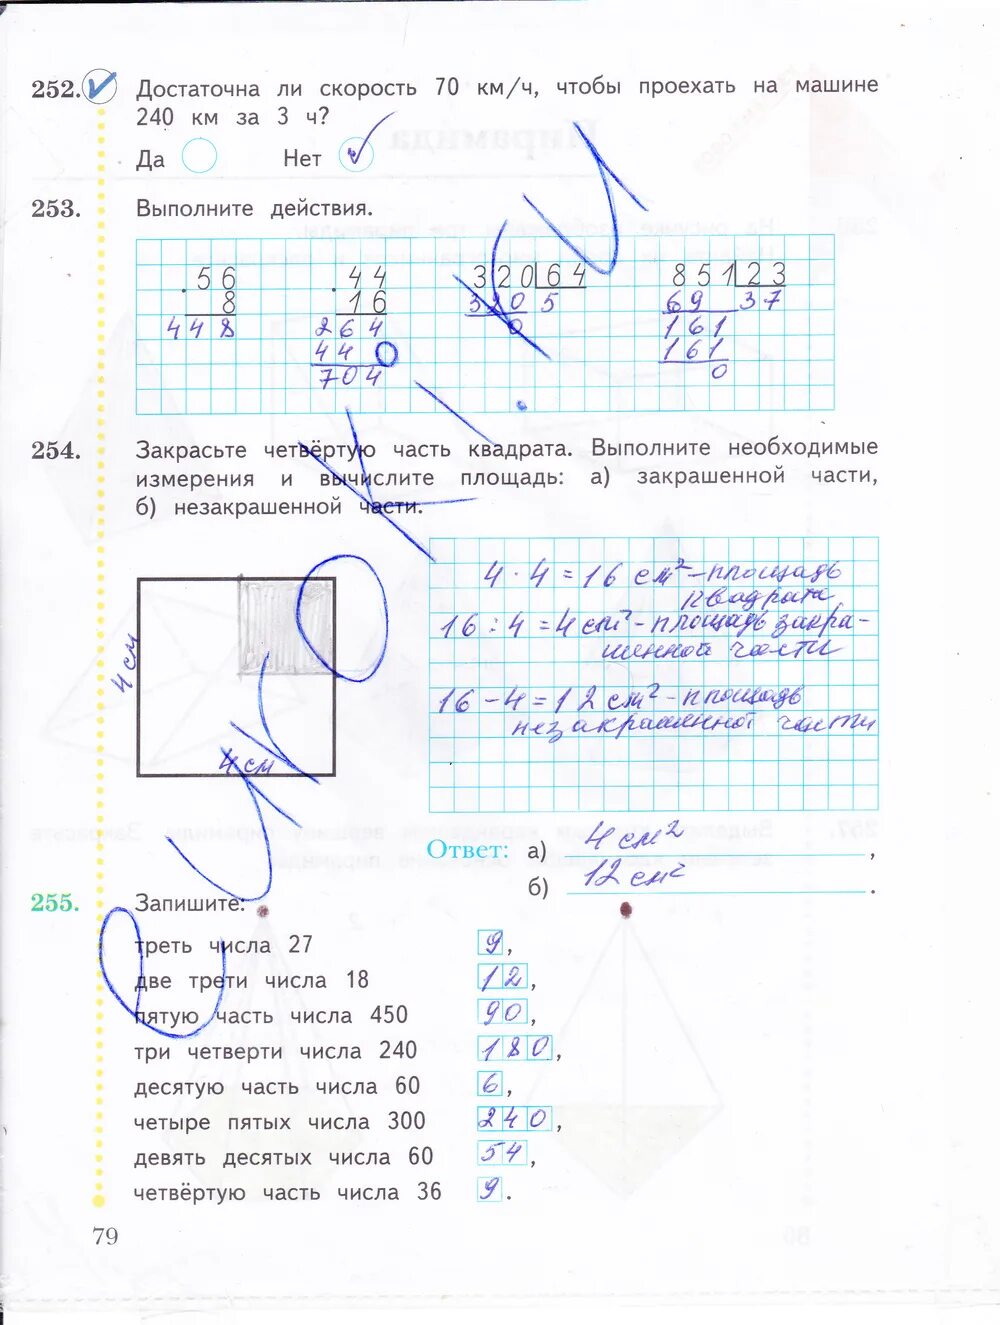 252. Достаточна ли скорость 70 км/ч, чтобы проехать на машине
240 км за 3 ч?
Да Нет
253. Выполните действия.
56 44 320 64 851 23
8 16 320 5 69 37
448 264 0 161
440 161
704 0
254. Закрасьте четвёртую часть квадрата. Выполните необходимые
измерения и вычислите площадь: а) закрашенной части,
б) незакрашенной части.
4 см
4 см
4 · 4 = 16 см² – площадь
квадрата
16 : 4 = 4 см² – площадь закра-
шенной части
16 – 4 = 12 см² – площадь
незакрашенной части
Ответ: а) 4 см²,
б) 12 см².
255. Запишите:
треть числа 27 9,
две трети числа 18 12,
пятую часть числа 450 90,
три четверти числа 240 180,
десятую часть числа 60 6,
четыре пятых числа 300 240,
девять десятых числа 60 54,
четвёртую часть числа 36 9.
79
euroki.ru